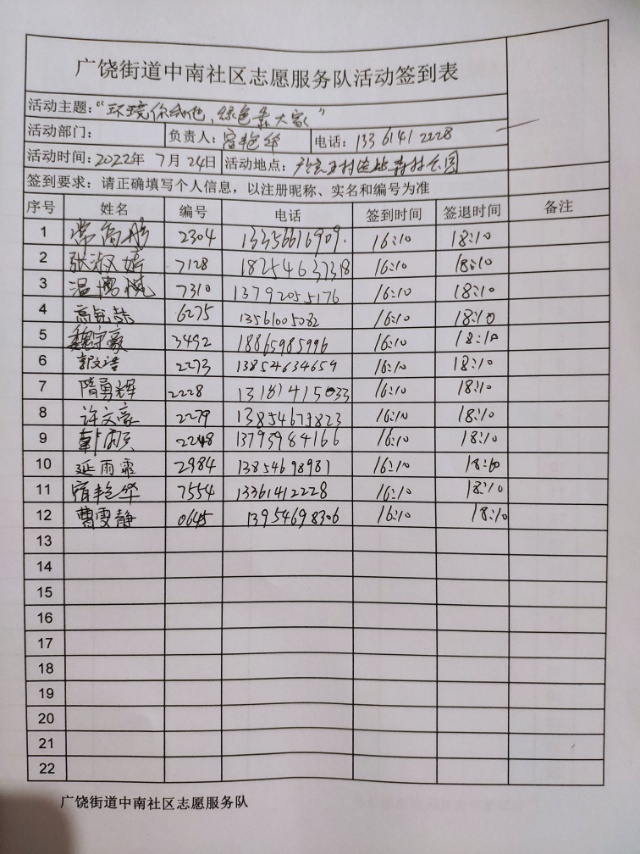 广饶街道中南社区志愿服务队活动签到表
活动主题：“环境你我他，绿色靠大家”
活动部门： 负责人：宿艳华 电话：13361412228
活动时间：2022年7月24日 活动地点：
签到要求：请正确填写个人信息，以注册昵称、实名和编号为准
序号 姓名 编号 电话 签到时间 签退时间 备注
1 2304 13356616909 16:10 18:10
2 张淑婷 7128 18254637318 16:10 18:10
3 温 7310 13792055176 16:10 18:10
4 6275 13561005082 16:10 18:10
5 魏 3492 18865985996 16:10 18:10
6 郭 2273 13854634659 16:10 18:10
7 隋勇辉 2228 13181415033 16:10 18:10
8 许文豪 2279 13854673823 16:10 18:10
9 2248 13795984166 16:10 18:10
10 延雨霏 2984 1385469898 16:10 18:10
11 宿艳华 7554 13361412228 16:10 18:10
12 曹雯静 0645 13954698306 16:10 18:10
13
14
15
16
17
18
19
20
21
22
广饶街道中南社区志愿服务队